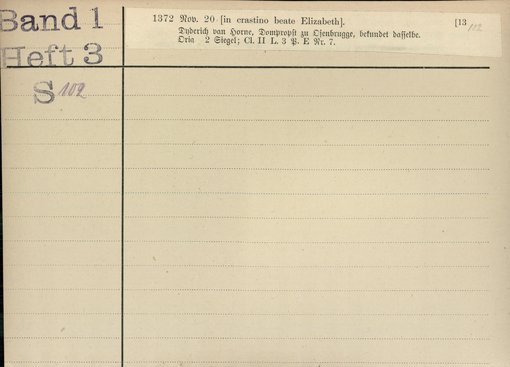 Band 1
Heft 3
S 102
1372 Nov. 20 [in crastino beate Elizabeth]. [13 102
Dyderich van Horne, Dompropst zu Osenbrugge, bekundet dasselbe.
Orig. 2 Siegel; Cl. II L. 3 P. E Nr. 7.